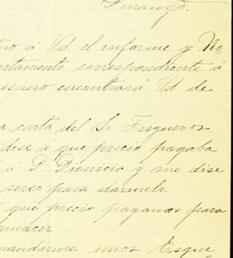 Durango.
á Vd el informe y
rtamento correspondiente á
espero encontrará Vd de
a carta del Sr. Frigueros
dise a que precio pagaba
á D. Dionicio y me dise
para
que precio pagamos para
mandarme unos Esque